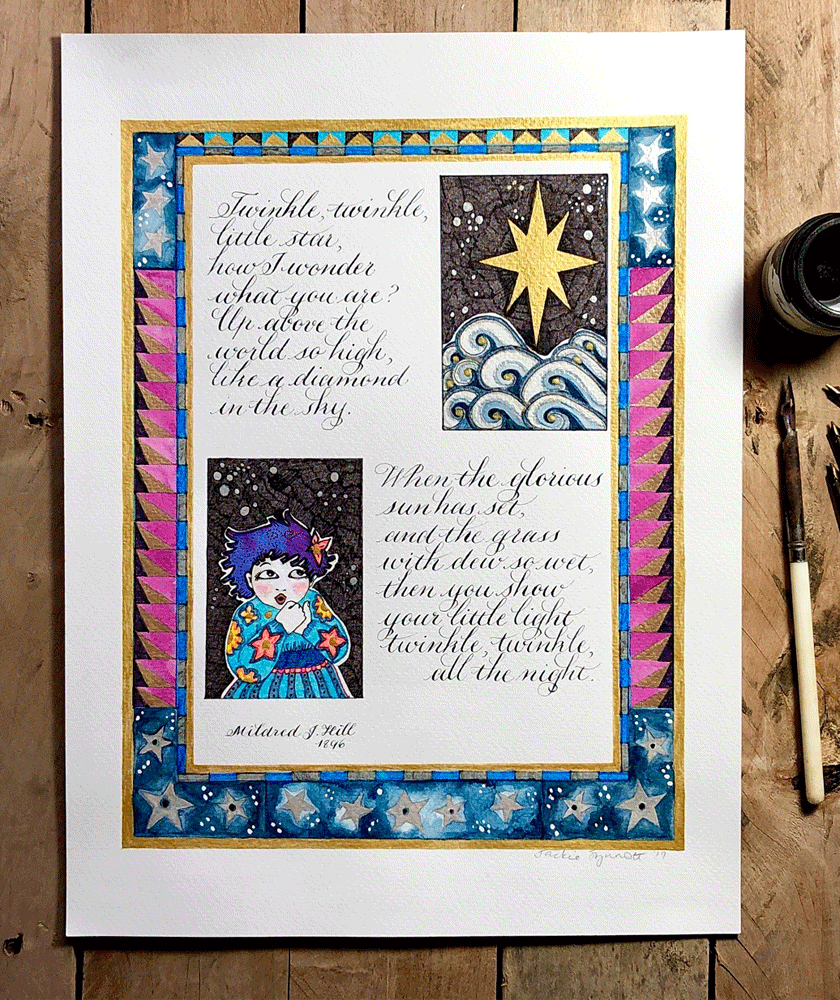 Twinkle, twinkle,
little star,
how I wonder
what you are?
Up above the
world so high,
like a diamond
in the sky.
When the glorious
sun has set,
and the grass
with dew so wet,
then you show
your little light
twinkle, twinkle,
all the night.
Mildred J. Hill
1896
Jackie '19